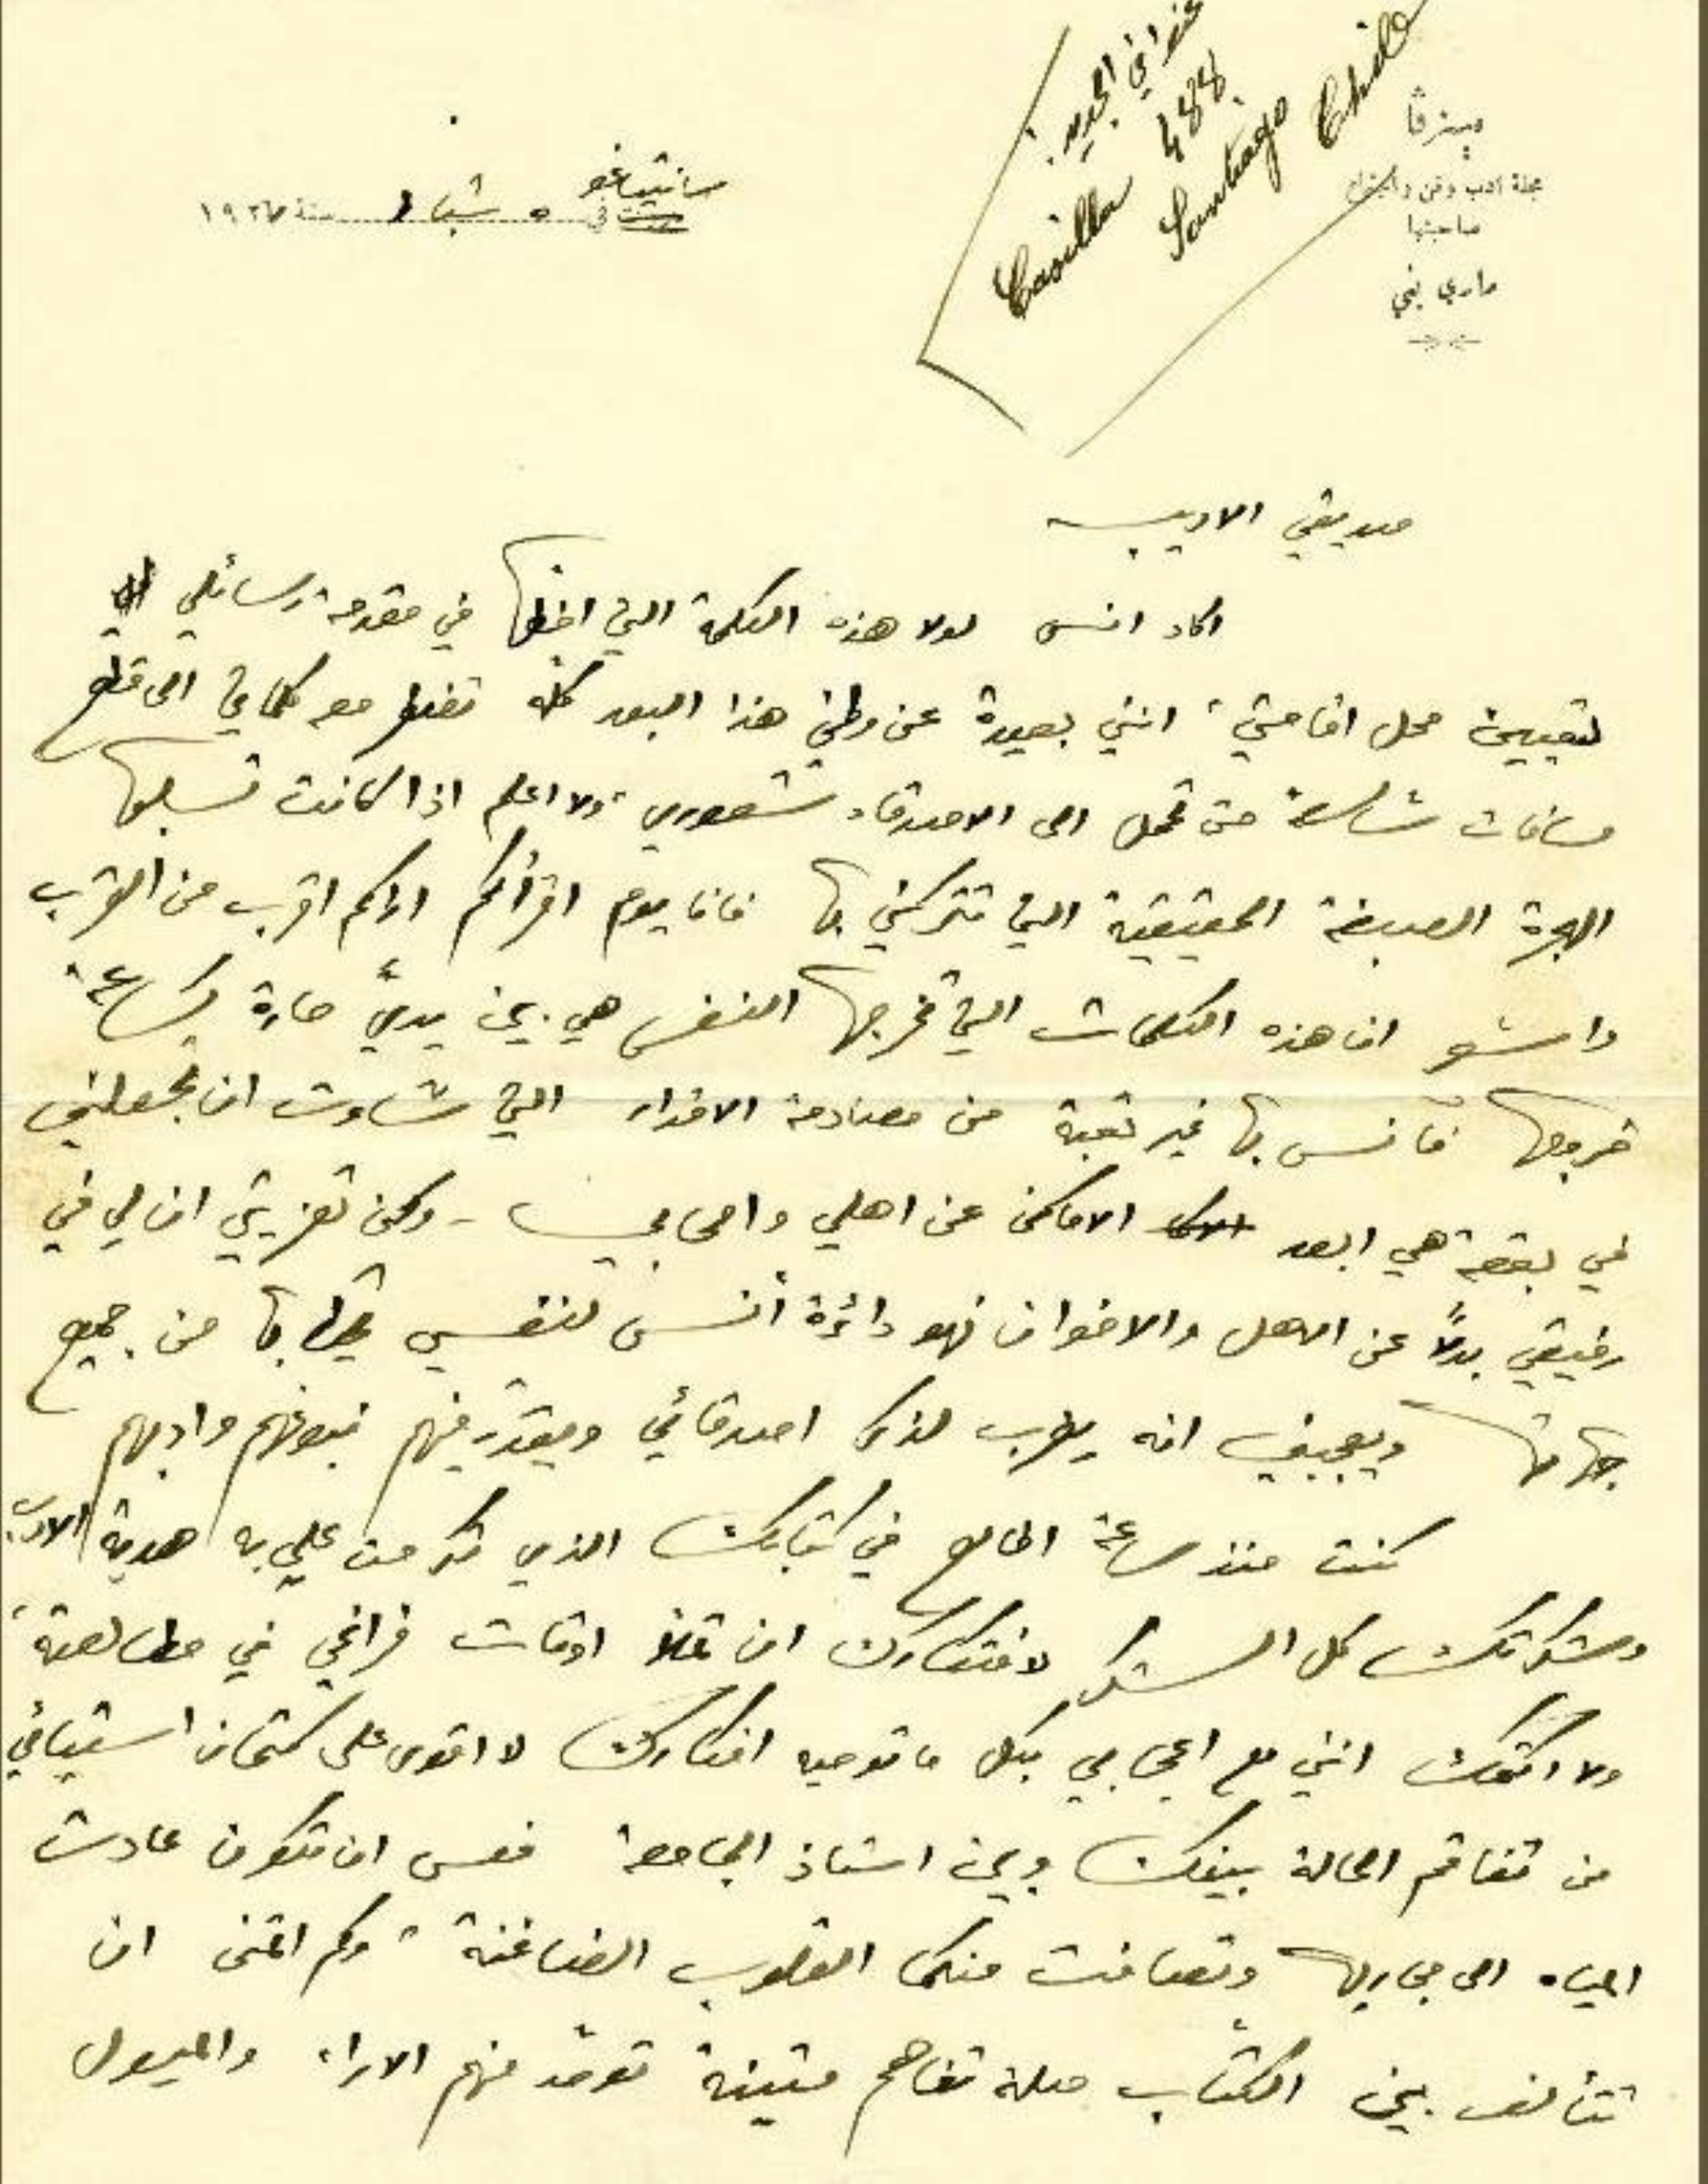 مينرڤا
مجلة ادب وفن واجتماع
صاحبتها
ماري يني
عنواني الجديد:
Casilla 488.
Santiago Chile
سانتياغو
في ٥ شباط سنة ١٩٢٧
صديقي الاديب
اكاد انسى لولا هذه الكلمة التي اخطها في مقدمة رسائلي
لتعيين محل اقامتي، انني بعيدة عن وطني هذا البعد كله تضطر معه كلماتي الى قطع
مسافات شاسعة حتى تحمل الى الاصدقاء شعوري، ولا اعلم اذا كانت تسلبها
الهجرة الصبغة الحقيقية التي تتركني بها فانا يوم اقرأكم اراكم اقرب من القرب
واشعر ان هذه الكلمات التي تخرجها النفس هي بين يديّ حارة كساعة
خروجها فآنس بها غير تعبة من مصادمة الاقدار التي شاءت ان تجعلني
في بقعة هي ابعد الاماكن عن اهلي واحبابي - ولكن تعزيتي ان لي في
رفيقي بدلاً عن الاهل والاخوان فهو دائرة أنس لنفسي يحيط بها من جميع
جهاتها ويعجبني انه يطرب لذكر اصدقائي ويقدّر فيهم نبوغهم وادبهم
كنت منذ ساعة اطالع في كتابك الذي تكرمت علي به هدية الادب
وشكرتك كل الشكر لافتكارك ان تملأ اوقات فراغي في مطالعته،
ولا اكتمك انني مع اعجابي بكل ما توحيه افكارك لا اقوى على كتمان استيائي
من تفاقم الحالة بينك وبين استاذ الجامعة فعسى ان تكون عادت
المياه الى مجاريها وتصافت منكما القلوب الضاغنة، وكم اتمنى ان
تتألف بين الكتّاب صلة تفاهم متينة توحّد منهم الاراء والميول